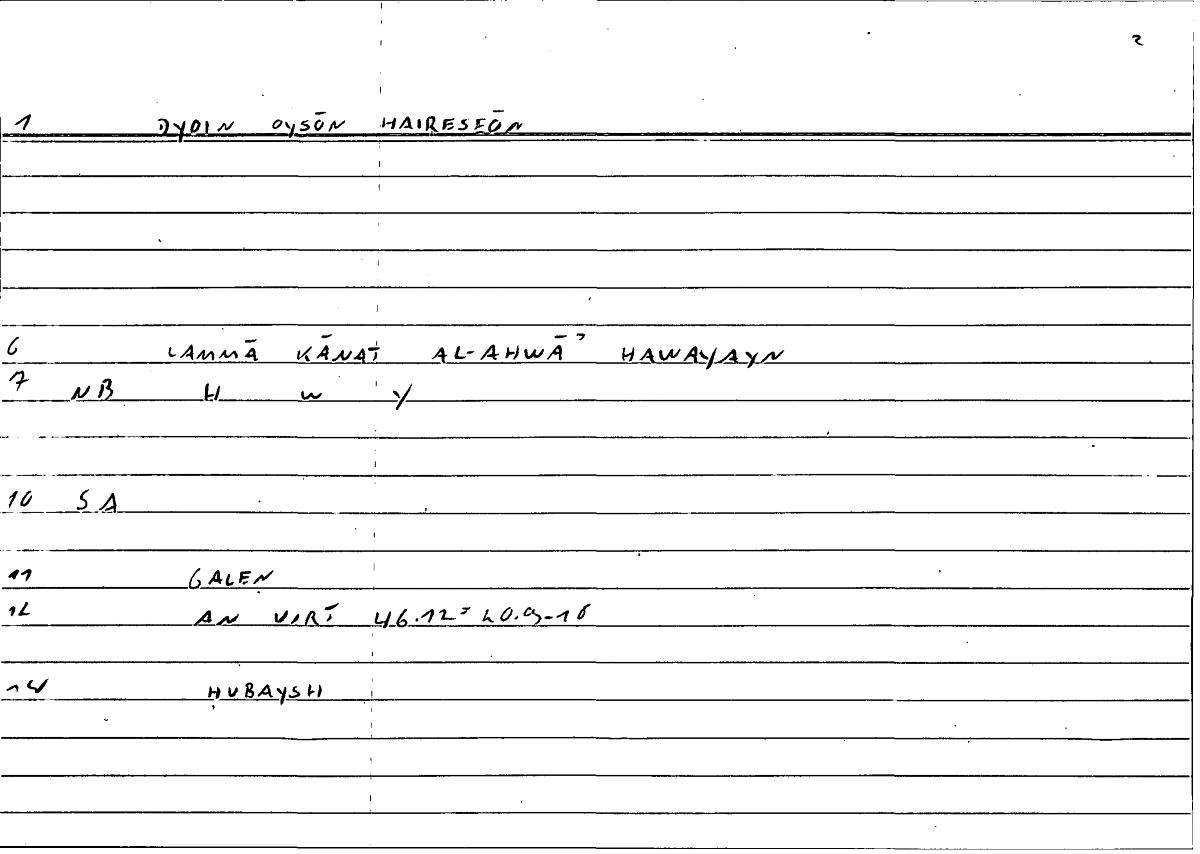 2
1 DYOIN OYSŌN HAIRESEŌN
6 LAMMĀ KĀNAT AL-AHWĀʾ HAWAYAYN
7 NB H W Y
10 SA
11 GALEN
12 AN VIRT 46.12 = 20.9-10
14 ḤUBAYSH